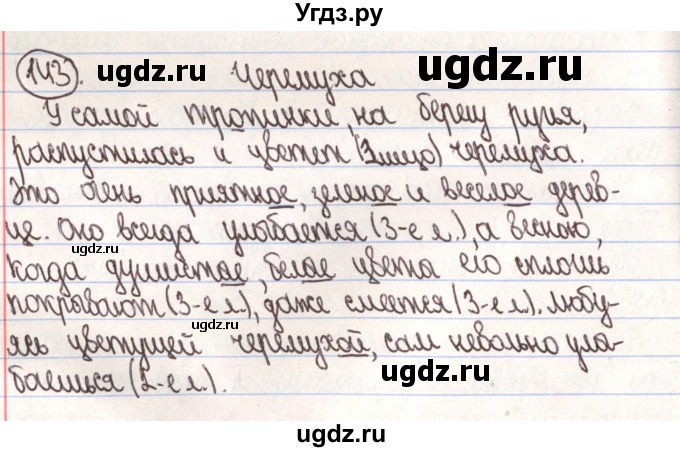 Угдз.ру
143. Черемуха
ugdz.ru
ugdz.ru
У самой тропинки, на берегу ручья,
распустилась и цветет (3 лицо) черемуха.
Это очень приятное, зеленое и веселое дерев-
це. Оно всегда улыбается (3-е л.), а весною,
ugdz.ru
когда душистые, белые цветы его сплошь
покрывают (3-е л.), даже смеется (3-е л.). Любу-
ugdz.ru
ясь цветущей черемухой, сам невольно улы-
ugdz.ru
баешься (2-е л.).
ugdz.ru
ugdz.ru